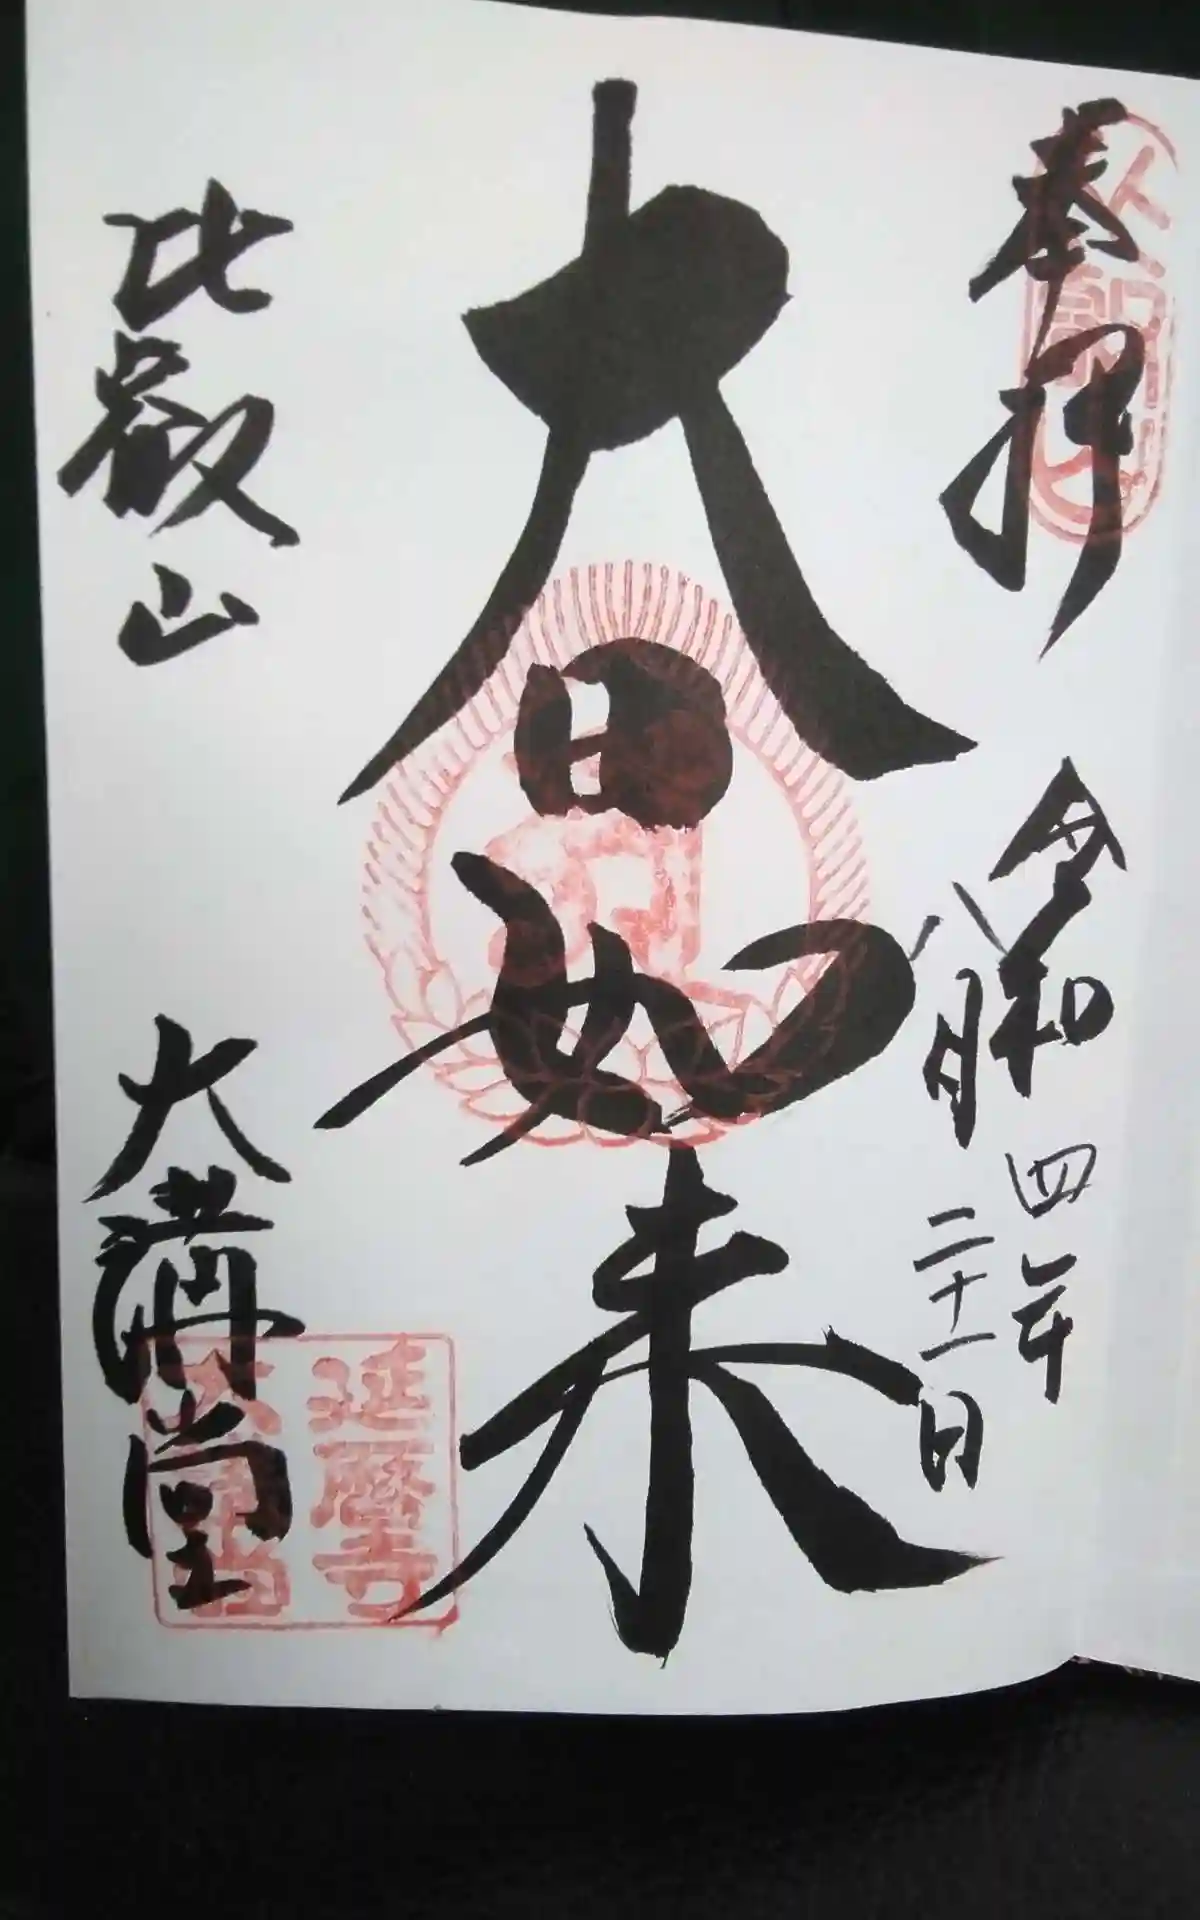 奉拝
令和四年
八月二十一日
大日如来
比叡山
大講堂
延暦寺
大講堂